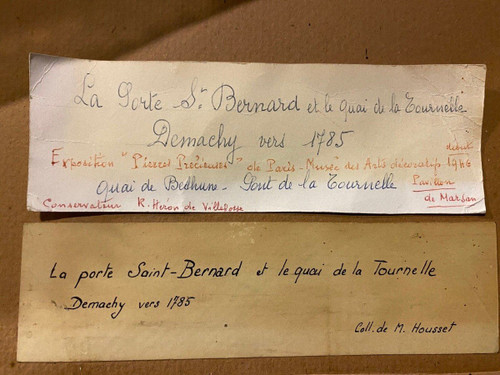 La Porte St Bernard et le quai de la Tournelle
Demachy vers 1785
Exposition "Pierres Précieuses" de Paris - Musée des Arts décoratifs début 1946
Quai de Bethune - Pont de la Tournelle Pavillon
Conservateur R. Héron de Villefosse de Marsan
La porte Saint-Bernard et le quai de la Tournelle
Demachy vers 1785
Coll. de M. Housset